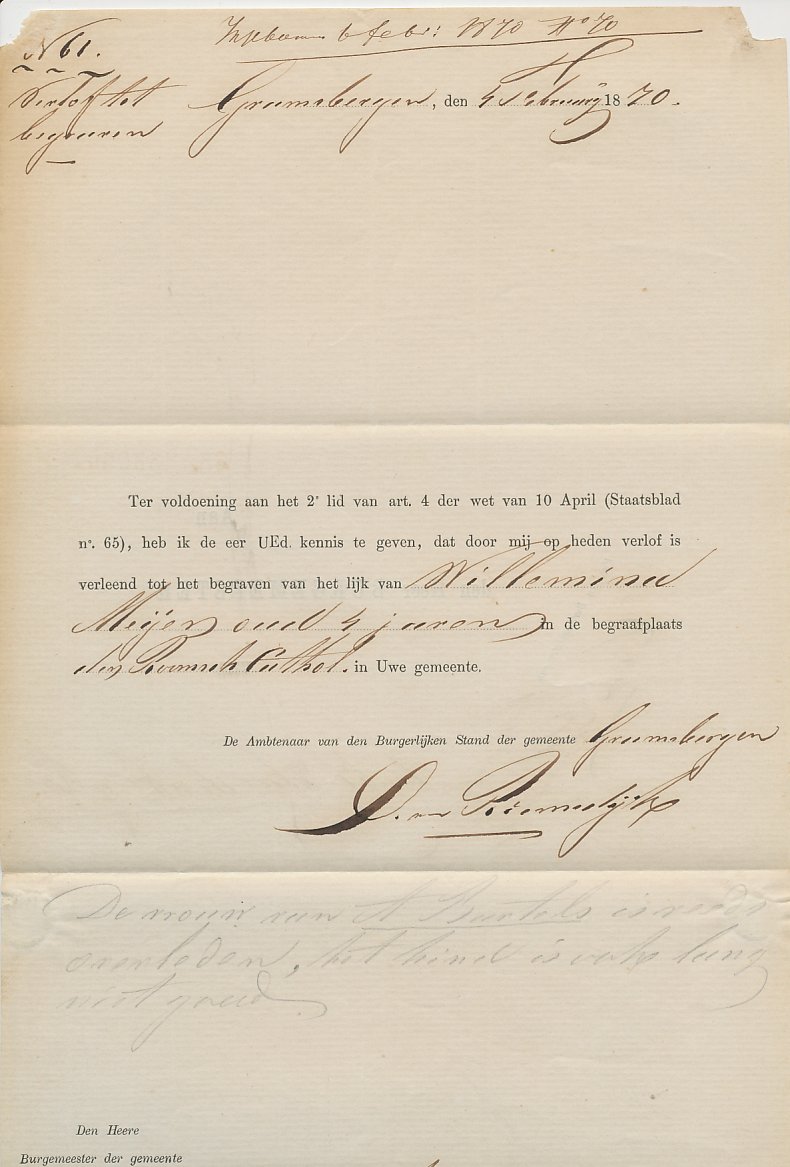 N 61.
Ingekomen 6 Febr: 1870 No 70
Verlof tot
begraven
Gramsbergen, den 5 Februarij 1870.
Ter voldoening aan het 2e lid van art. 4 der wet van 10 April (Staatsblad
no. 65), heb ik de eer UEd. kennis te geven, dat door mij op heden verlof is
verleend tot het begraven van het lijk van Willemina
Meijer oud 5 jaren in de begraafplaats
der Roomsch Cathol. in Uwe gemeente.
De Ambtenaar van den Burgerlijken Stand der gemeente Gramsbergen
De vrouw van A Bartels is reeds
overleden, het kind is ook lang
niet goed
Den Heere
Burgemeester der gemeente